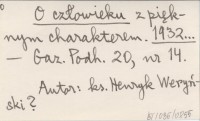 O człowieku z pięk-
nym charakterem. 1932...
— Gaz. Podh. 20, nr 14.
Autor: ks. Henryk Weryń-
ski?